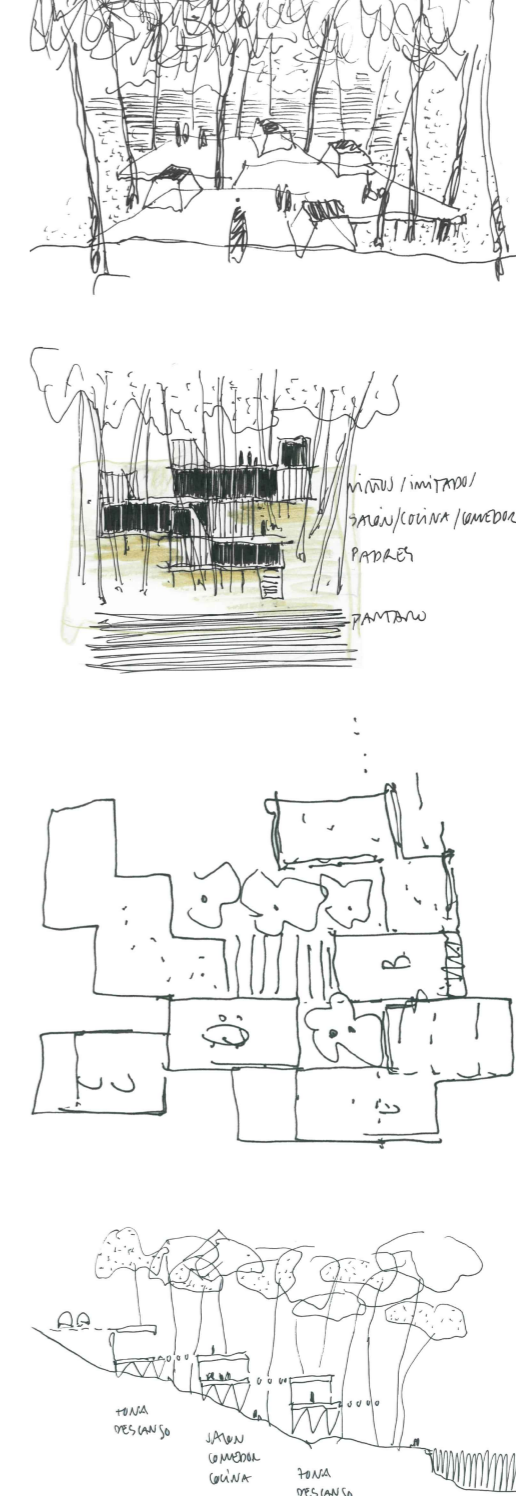 NIÑOS / INVITADOS
SALÓN / COCINA / COMEDOR
PADRES
PANTANO
B
ZONA
DESCANSO
SALON
COMEDOR
COCINA
ZONA
DESCANSO